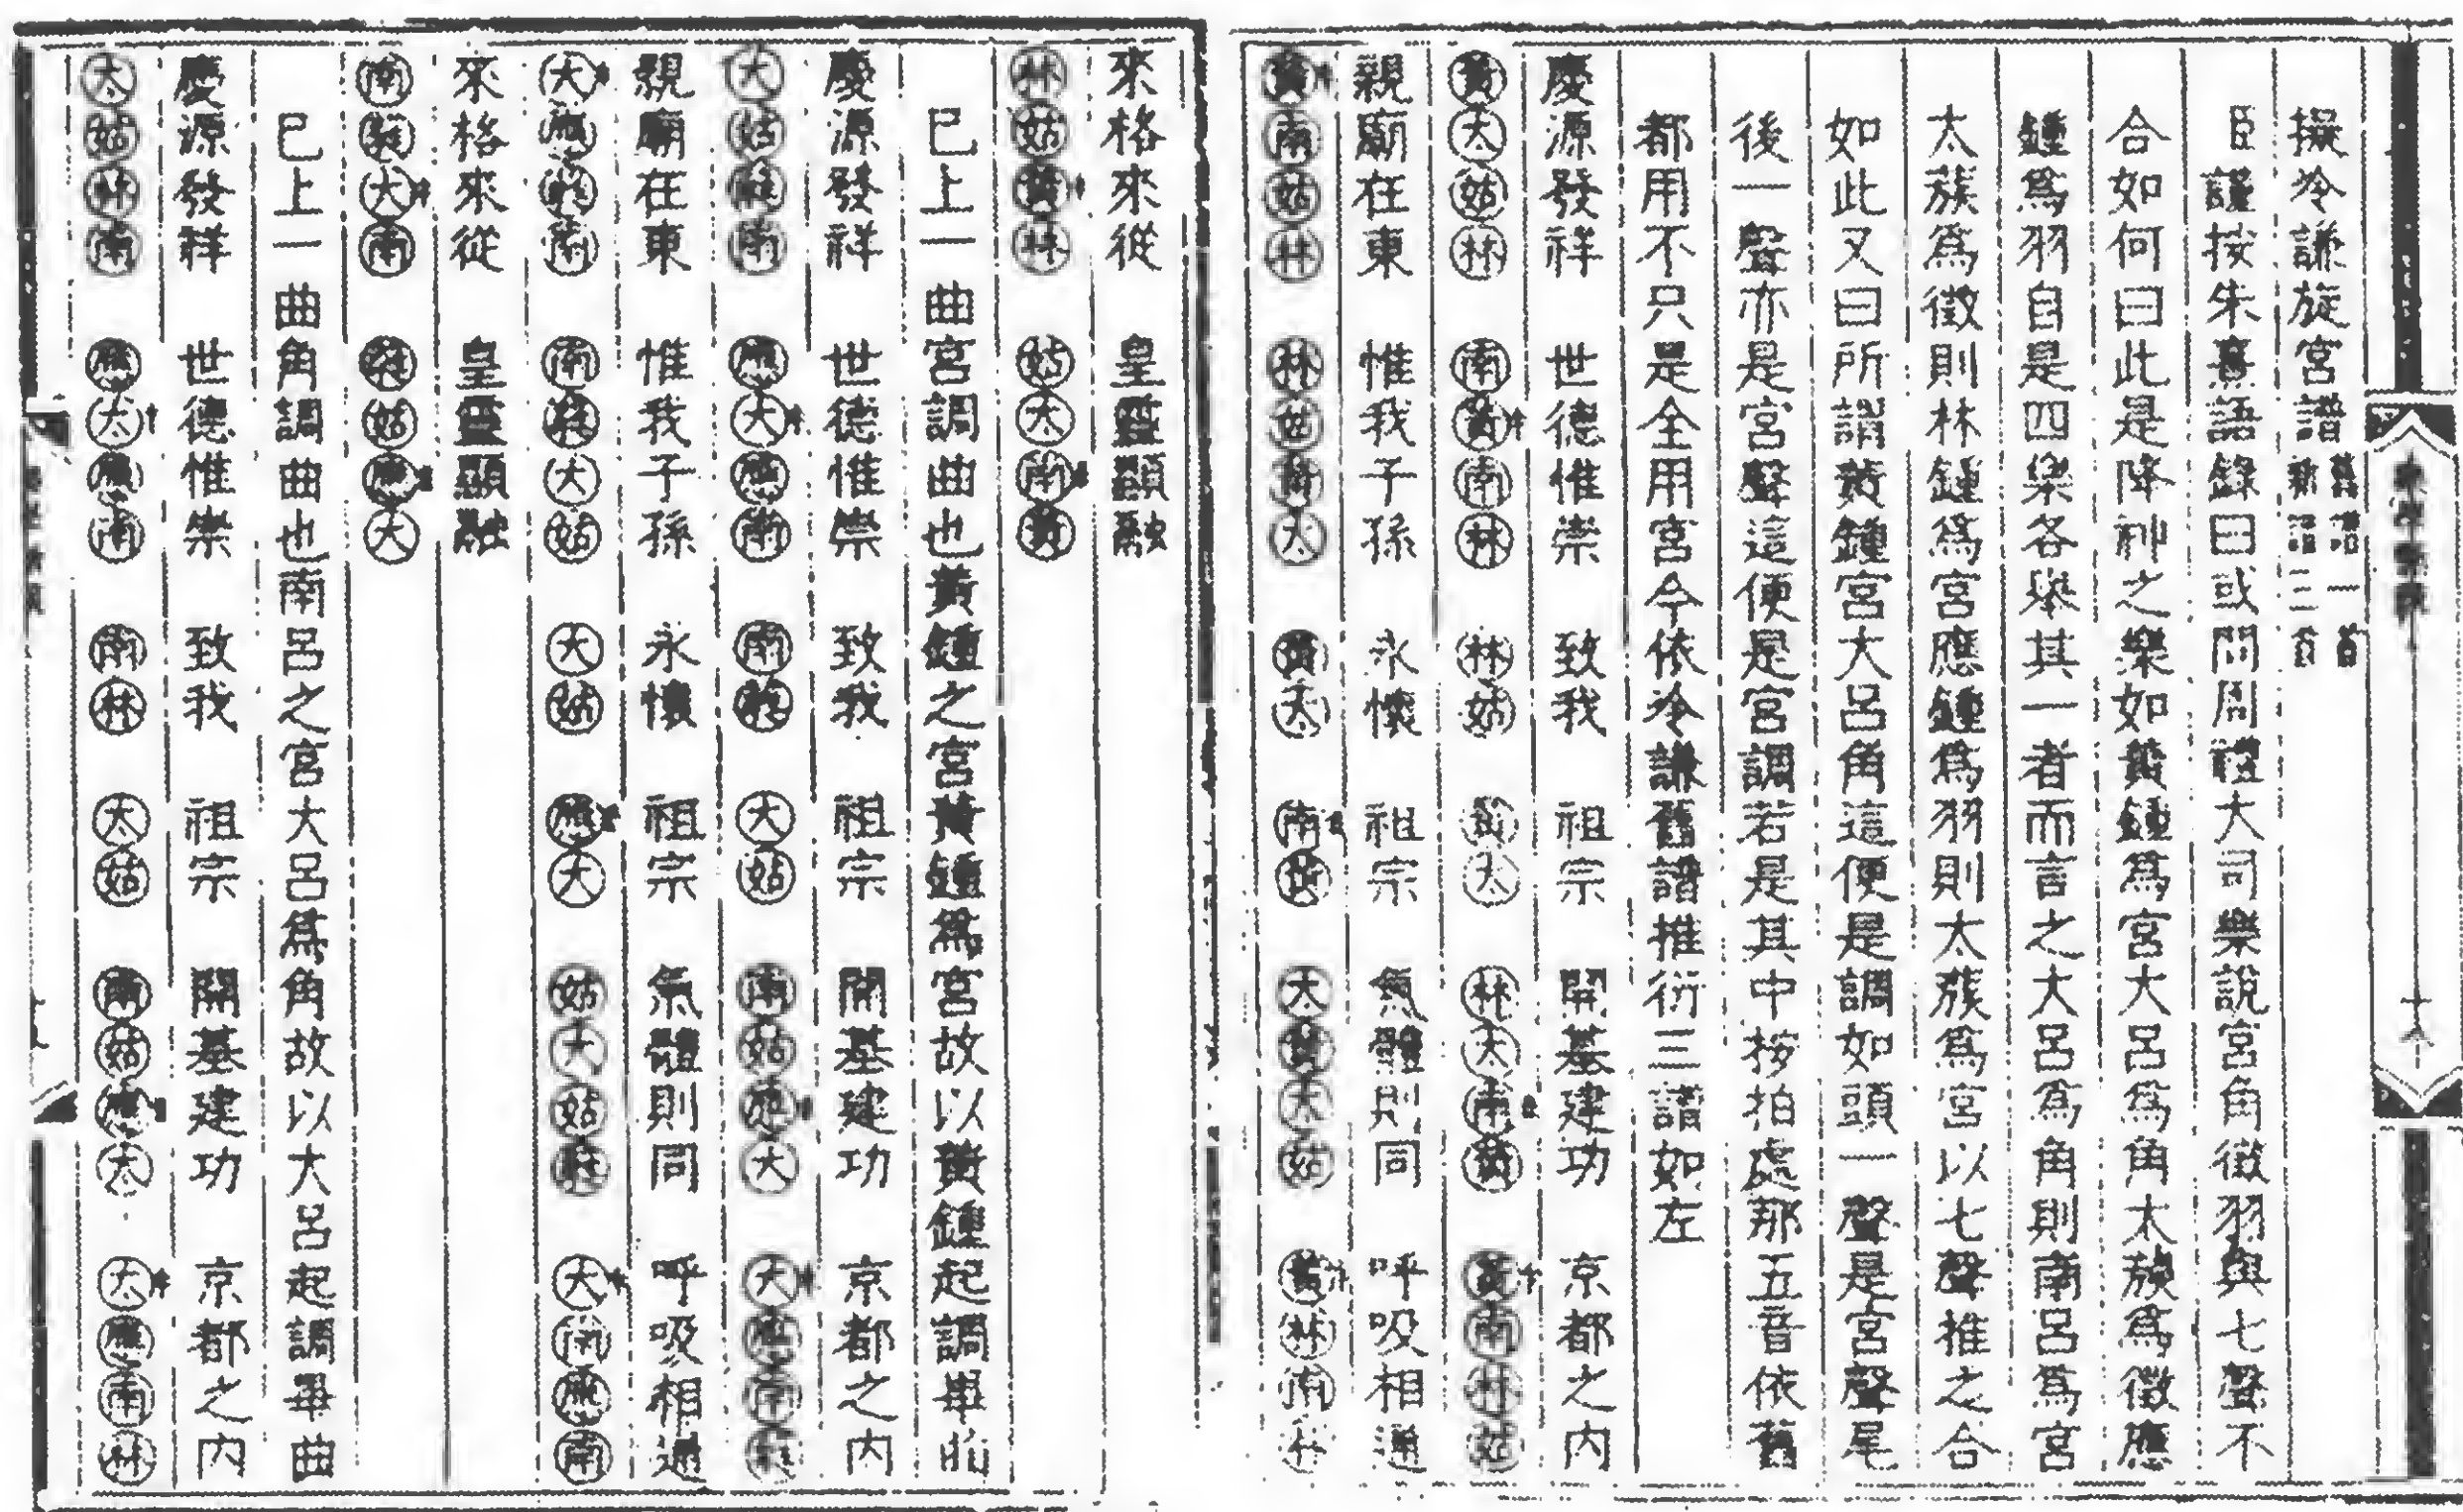 擬冷謙旋宮譜 舊譜一首 新譜三首
臣謹按朱熹語錄曰或問周禮大司樂說宮角徵羽與七聲不
合如何曰此是降神之樂如黃鍾爲宮大呂爲角太蔟爲徵應
鍾爲羽自是四樂各舉其一者而言之大呂爲角則南呂爲宮
太蔟爲徵則林鍾爲宮應鍾爲羽則太蔟爲宮以七聲推之合
如此又曰所謂黃鍾宮大呂角這便是調如頭一聲是宮聲尾
後一聲亦是宮聲這便是宮調若是其中按拍處那五音依舊
都用不只是全用宮今依冷謙舊譜推衍三譜如左
慶源發祥 世德惟崇 致我 祖宗 開基建功 京都之內
黃太姑林 南黃南林 林姑 太 林太南黃 黃南林姑
親廟在東 惟我子孫 永懷 祖宗 氣體則同 呼吸相通
黃南姑林 林姑黃太 黃太 南黃 太黃太姑 黃林南林
來格來從 皇靈顯融
林姑黃林 姑太南黃
已上一曲宮調曲也黃鍾之宮黃鍾爲宮故以黃鍾起調畢曲
慶源發祥 世德惟崇 致我 祖宗 開基建功 京都之內
大姑蕤南 應大應南 南蕤 大姑 南姑應大 大應南蕤
親廟在東 惟我子孫 永懷 祖宗 氣體則同 呼吸相通
大應蕤南 南蕤大姑 大姑 應大 姑大姑蕤 大南應南
來格來從 皇靈顯融
南蕤大南 蕤姑應大
已上一曲角調曲也南呂之宮大呂爲角故以大呂起調畢曲
慶源發祥 世德惟崇 致我 祖宗 開基建功 京都之內
太姑林南 應太應南 南林 太姑 南姑應太 太應南林